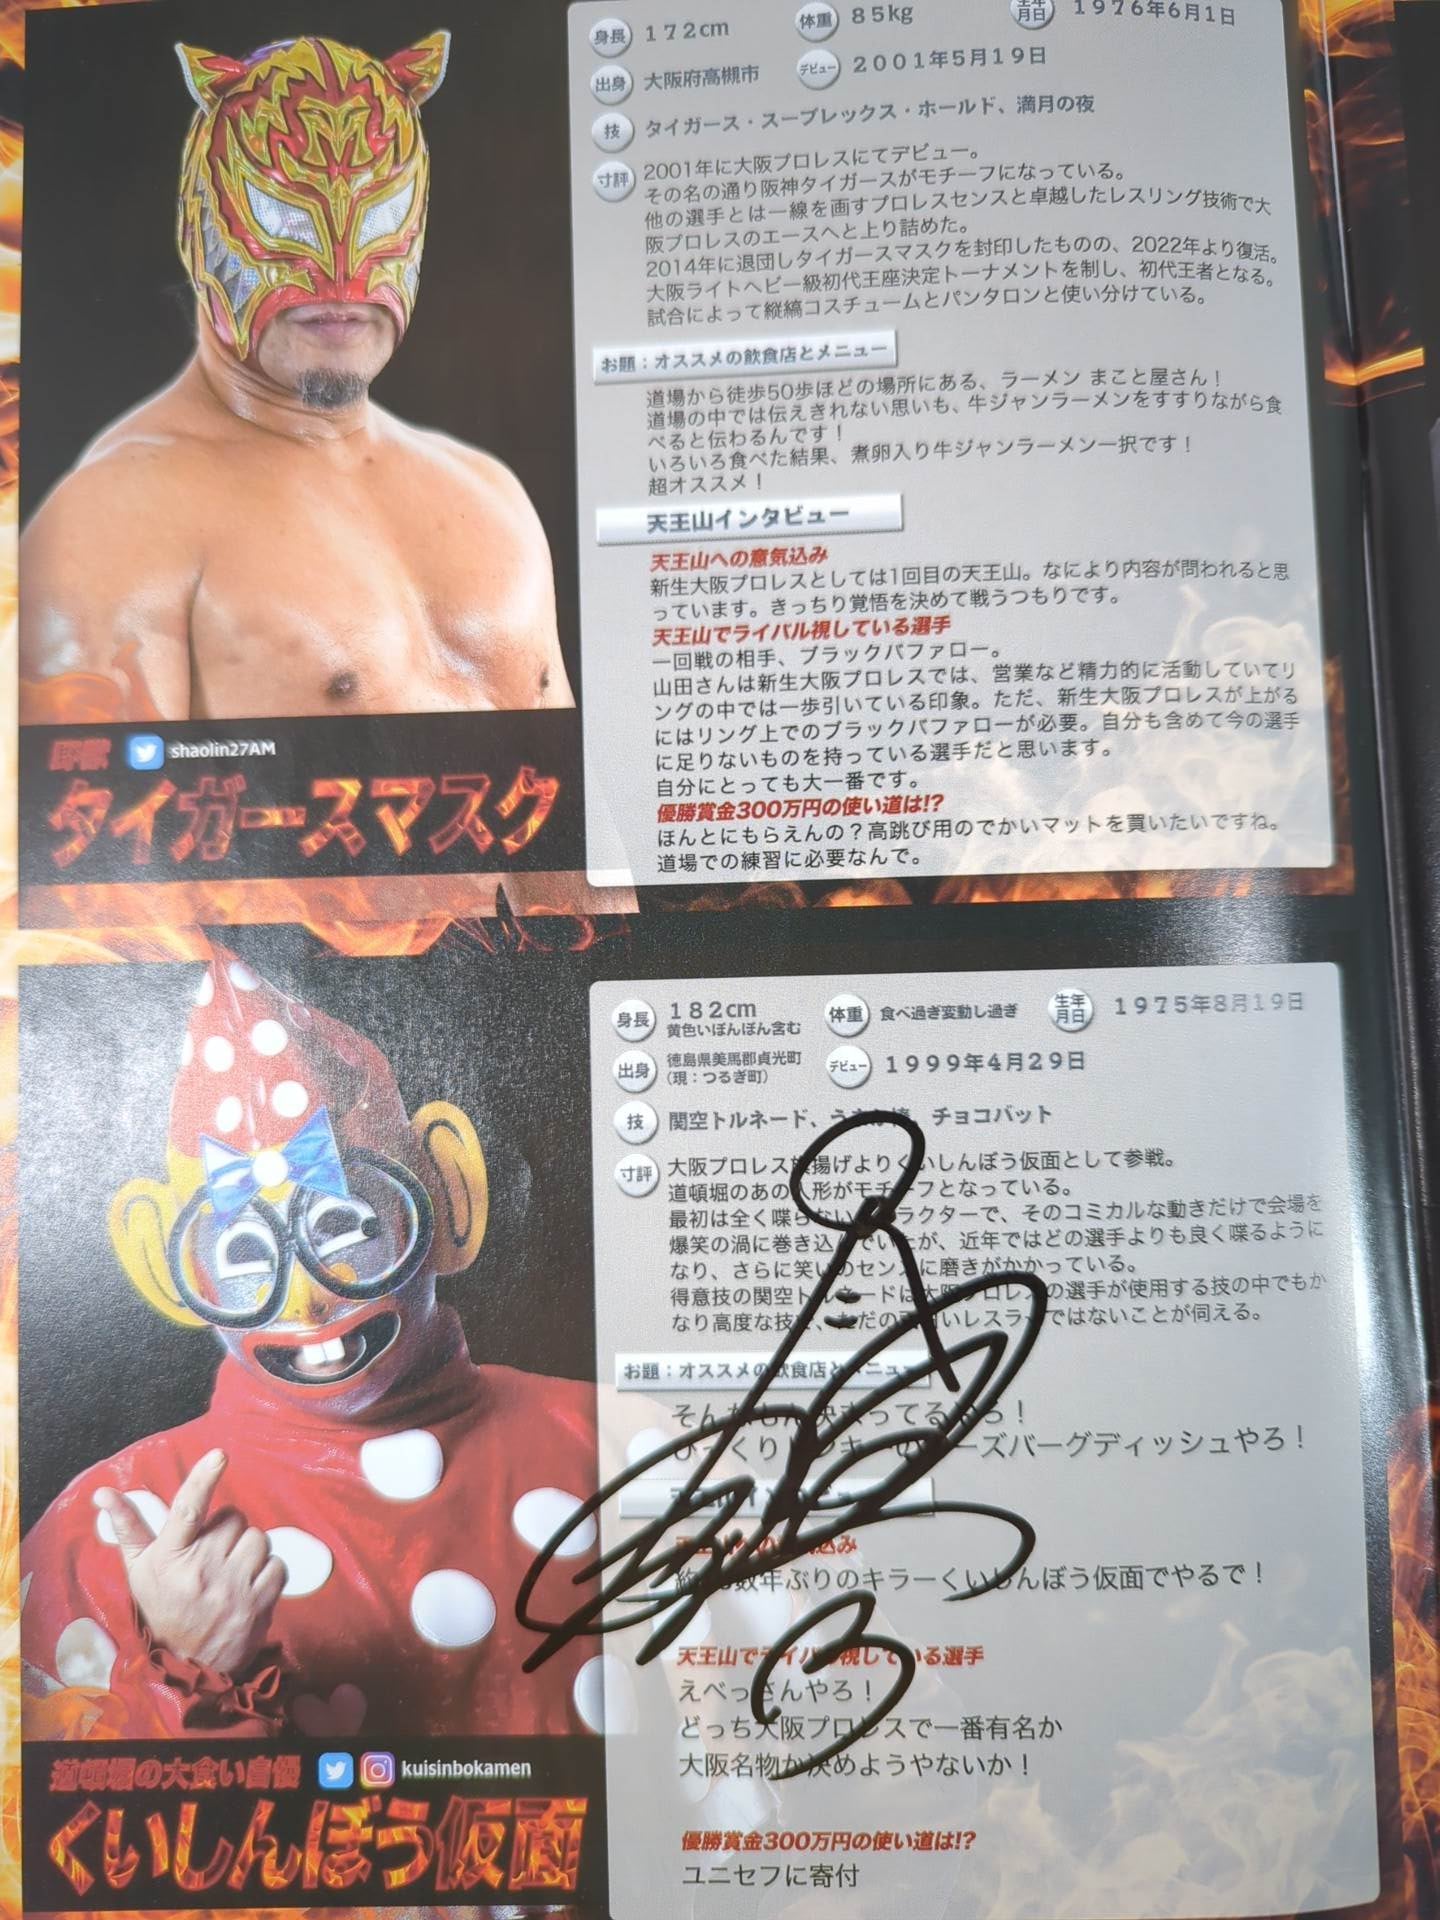 身長 172cm 体重 85kg 生年月日 1976年6月1日
出身 大阪府高槻市 デビュー 2001年5月19日
技 タイガース・スープレックス・ホールド、満月の夜
寸評 2001年に大阪プロレスにてデビュー。
その名の通り阪神タイガースがモチーフになっている。
他の選手とは一線を画すプロレスセンスと卓越したレスリング技術で大
阪プロレスのエースへと上り詰めた。
2014年に退団しタイガースマスクを封印したものの、2022年より復活。
大阪ライトヘビー級初代王座決定トーナメントを制し、初代王者となる。
試合によって縦縞コスチュームとパンタロンと使い分けている。
お題：オススメの飲食店とメニュー
道場から徒歩50歩ほどの場所にある、ラーメン まこと屋さん！
道場の中では伝えきれない思いも、牛ジャンラーメンをすすりながら食
べると伝わるんです！
いろいろ食べた結果、煮卵入り牛ジャンラーメン一択です！
超オススメ！
天王山インタビュー
天王山への意気込み
新生大阪プロレスとしては1回目の天王山。なにより内容が問われると思
っています。きっちり覚悟を決めて戦うつもりです。
天王山でライバル視している選手
一回戦の相手、ブラックバファロー。
山田さんは新生大阪プロレスでは、営業など精力的に活動していてリ
ングの中では一歩引いている印象。ただ、新生大阪プロレスが上がる
にはリング上でのブラックバファローが必要。自分も含めて今の選手
に足りないものを持っている選手だと思います。
自分にとっても大一番です。
優勝賞金300万円の使い道は!?
ほんとにもらえんの？高跳び用のでかいマットを買いたいですね。
道場での練習に必要なんで。
shaolin27AM
タイガースマスク
身長 182cm 黄色いぼんぼん含む 体重 食べ過ぎ変動し過ぎ 生年月日 1975年8月19日
出身 徳島県美馬郡貞光町（現：つるぎ町） デビュー 1999年4月29日
技 関空トルネード、チョコバット
寸評 大阪プロレス旗揚げよりくいしんぼう仮面として参戦。
道頓堀のあの人形がモチーフとなっている。
最初は全く喋らないキャラクターで、そのコミカルな動きだけで会場を
爆笑の渦に巻き込んでいたが、近年ではどの選手よりも良く喋るように
なり、さらに笑いのセンスに磨きがかかっている。
得意技の関空トルネードは大阪プロレスの選手が使用する技の中でもか
なり高度な技で、ただの面白いレスラーではないことが伺える。
お題：オススメの飲食店とメニュー
そんなもん決まってるやろ！
びっくりドンキーのチーズバーグディッシュやろ！
天王山インタビュー
天王山への意気込み
数年ぶりのキラーくいしんぼう仮面でやるで！
天王山でライバル視している選手
えべっさんやろ！
どっち大阪プロレスで一番有名か
大阪名物か決めようやないか！
優勝賞金300万円の使い道は!?
ユニセフに寄付
道頓堀の大食い自慢 kuisinbokamen
くいしんぼう仮面